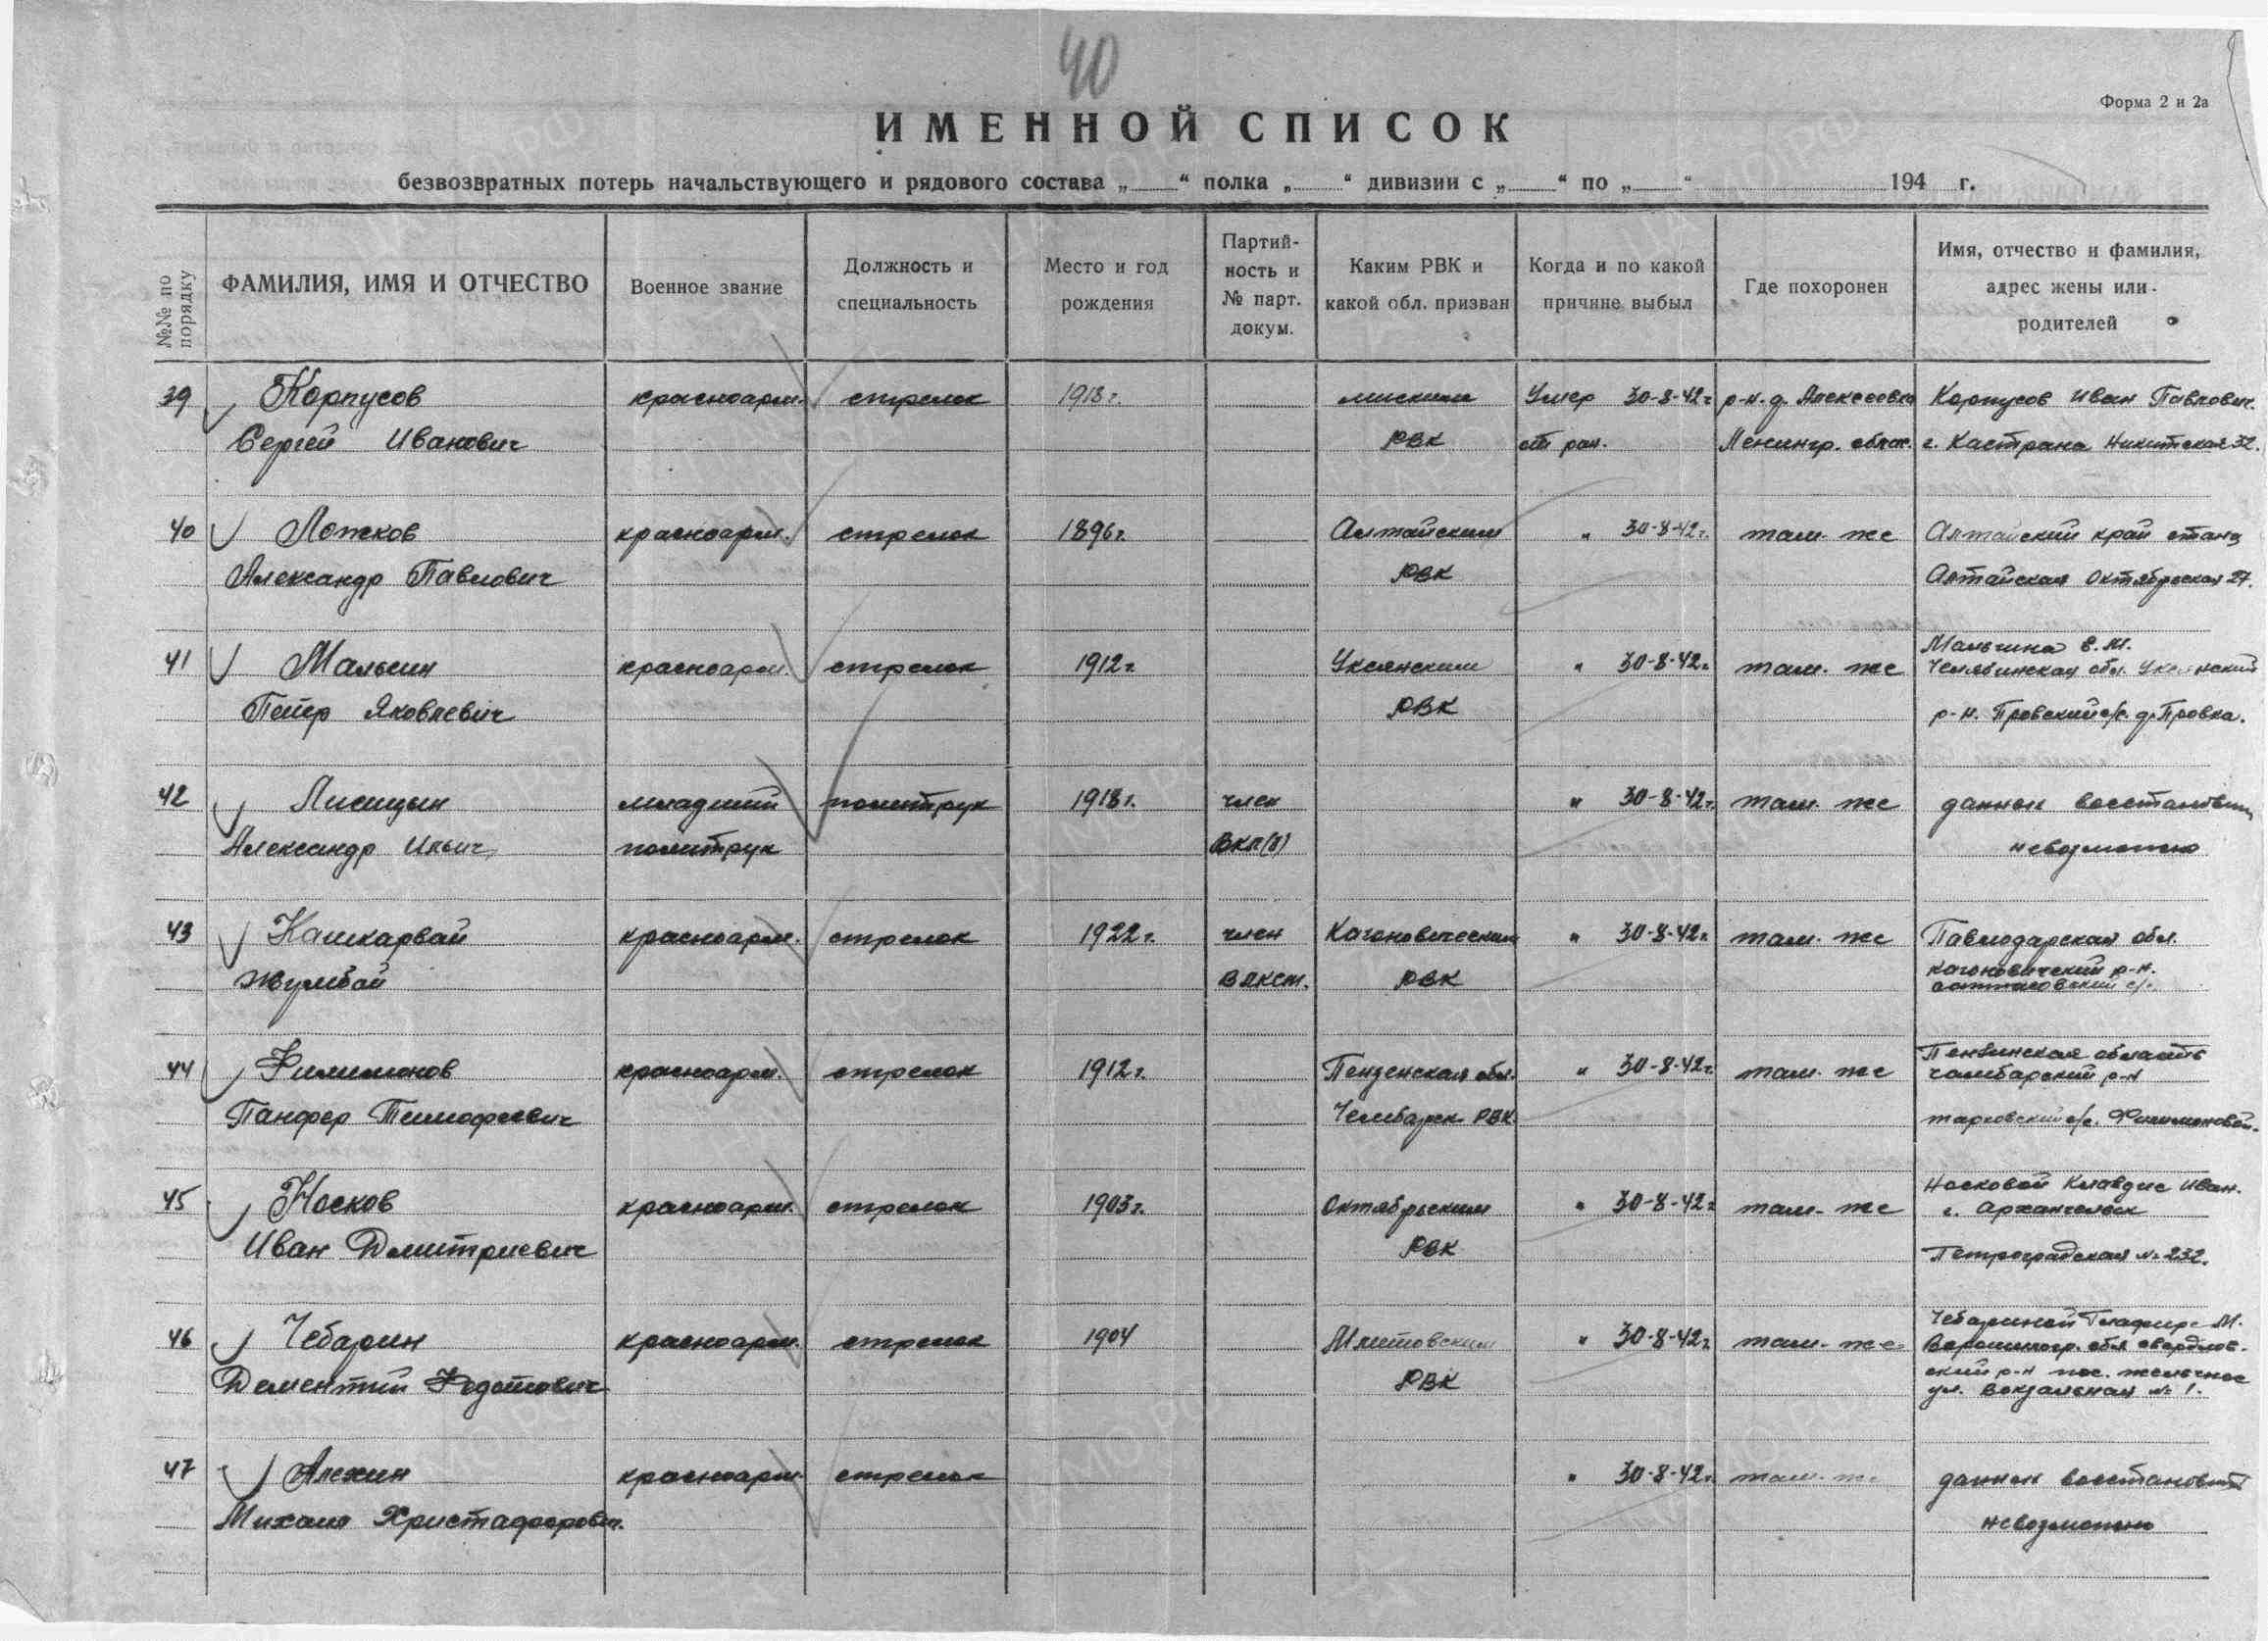 40
Форма 2 и 2а
ИМЕННОЙ СПИСОК
безвозвратных потерь начальствующего и рядового состава „ “ полка „ “ дивизии с „ “ по „ “ 194 г.
№№ по порядку
ФАМИЛИЯ, ИМЯ И ОТЧЕСТВО
Военное звание
Должность и специальность
Место и год рождения
Партийность и № парт. докум.
Каким РВК и какой обл. призван
Когда и по какой причине выбыл
Где похоронен
Имя, отчество и фамилия, адрес жены или родителей
39 Корпусов красноарм. стрелок 1918 г. РВК Умер 30-8-42 г. р-н. д. Алексеевка Корпусов Иван Павлович.
Сергей Иванович от ран. Ленингр. област. г. Кастрана Никитская 32.
40 Ложков красноарм. стрелок 1896 г. Алтайским " 30-8-42 г. там-же Алтайский край станц
Александр Павлович РВК Алтайская Октябрьская 27.
41 Мальгин красноарм. стрелок 1912 г. Уксянским " 30-8-42 г. там-же Мальгина Е. М.
Челябинская обл. Уксянский
Петр Яковлевич РВК р-н. Провский с/с. д. Провка.
42 Лисицын младший политрук 1918 г. член " 30-8-42 г. там-же данных восстановить
Александр Ильич политрук ВКП(б) невозможно
43 Кашкарбай красноарм. стрелок 1922 г. член Кагановическим " 30-8-42 г. там-же Павлодарская обл.
Жумбай ВЛКСМ. РВК кагоновический р-н.
с/с
44 Филимонов красноарм. стрелок 1912 г. Пензенская обл. " 30-8-42 г. там-же Пензинская область
чамбарский р-н
Панфер Тимофеевич Чембарск РВК. с/с. Филимоновой.
45 Носков красноарм. стрелок 1903 г. Октябрьским " 30-8-42 г. там-же Носковой Клавдие Иван.
г. Архангельск
Иван Дмитриевич РВК Петроградская № 232.
46 Чебарин красноарм. стрелок 1904 " 30-8-42 г. там-же Чебариной Глафире М.
Ворошиловгр. обл. свердлов-
Дементий Федотович РВК ский р-н пос.
ул. Вокзальная № 1.
47 Алехин красноарм. стрелок " 30-8-42 г. там-же данных восстановить
Михаил Христафоров. невозможно